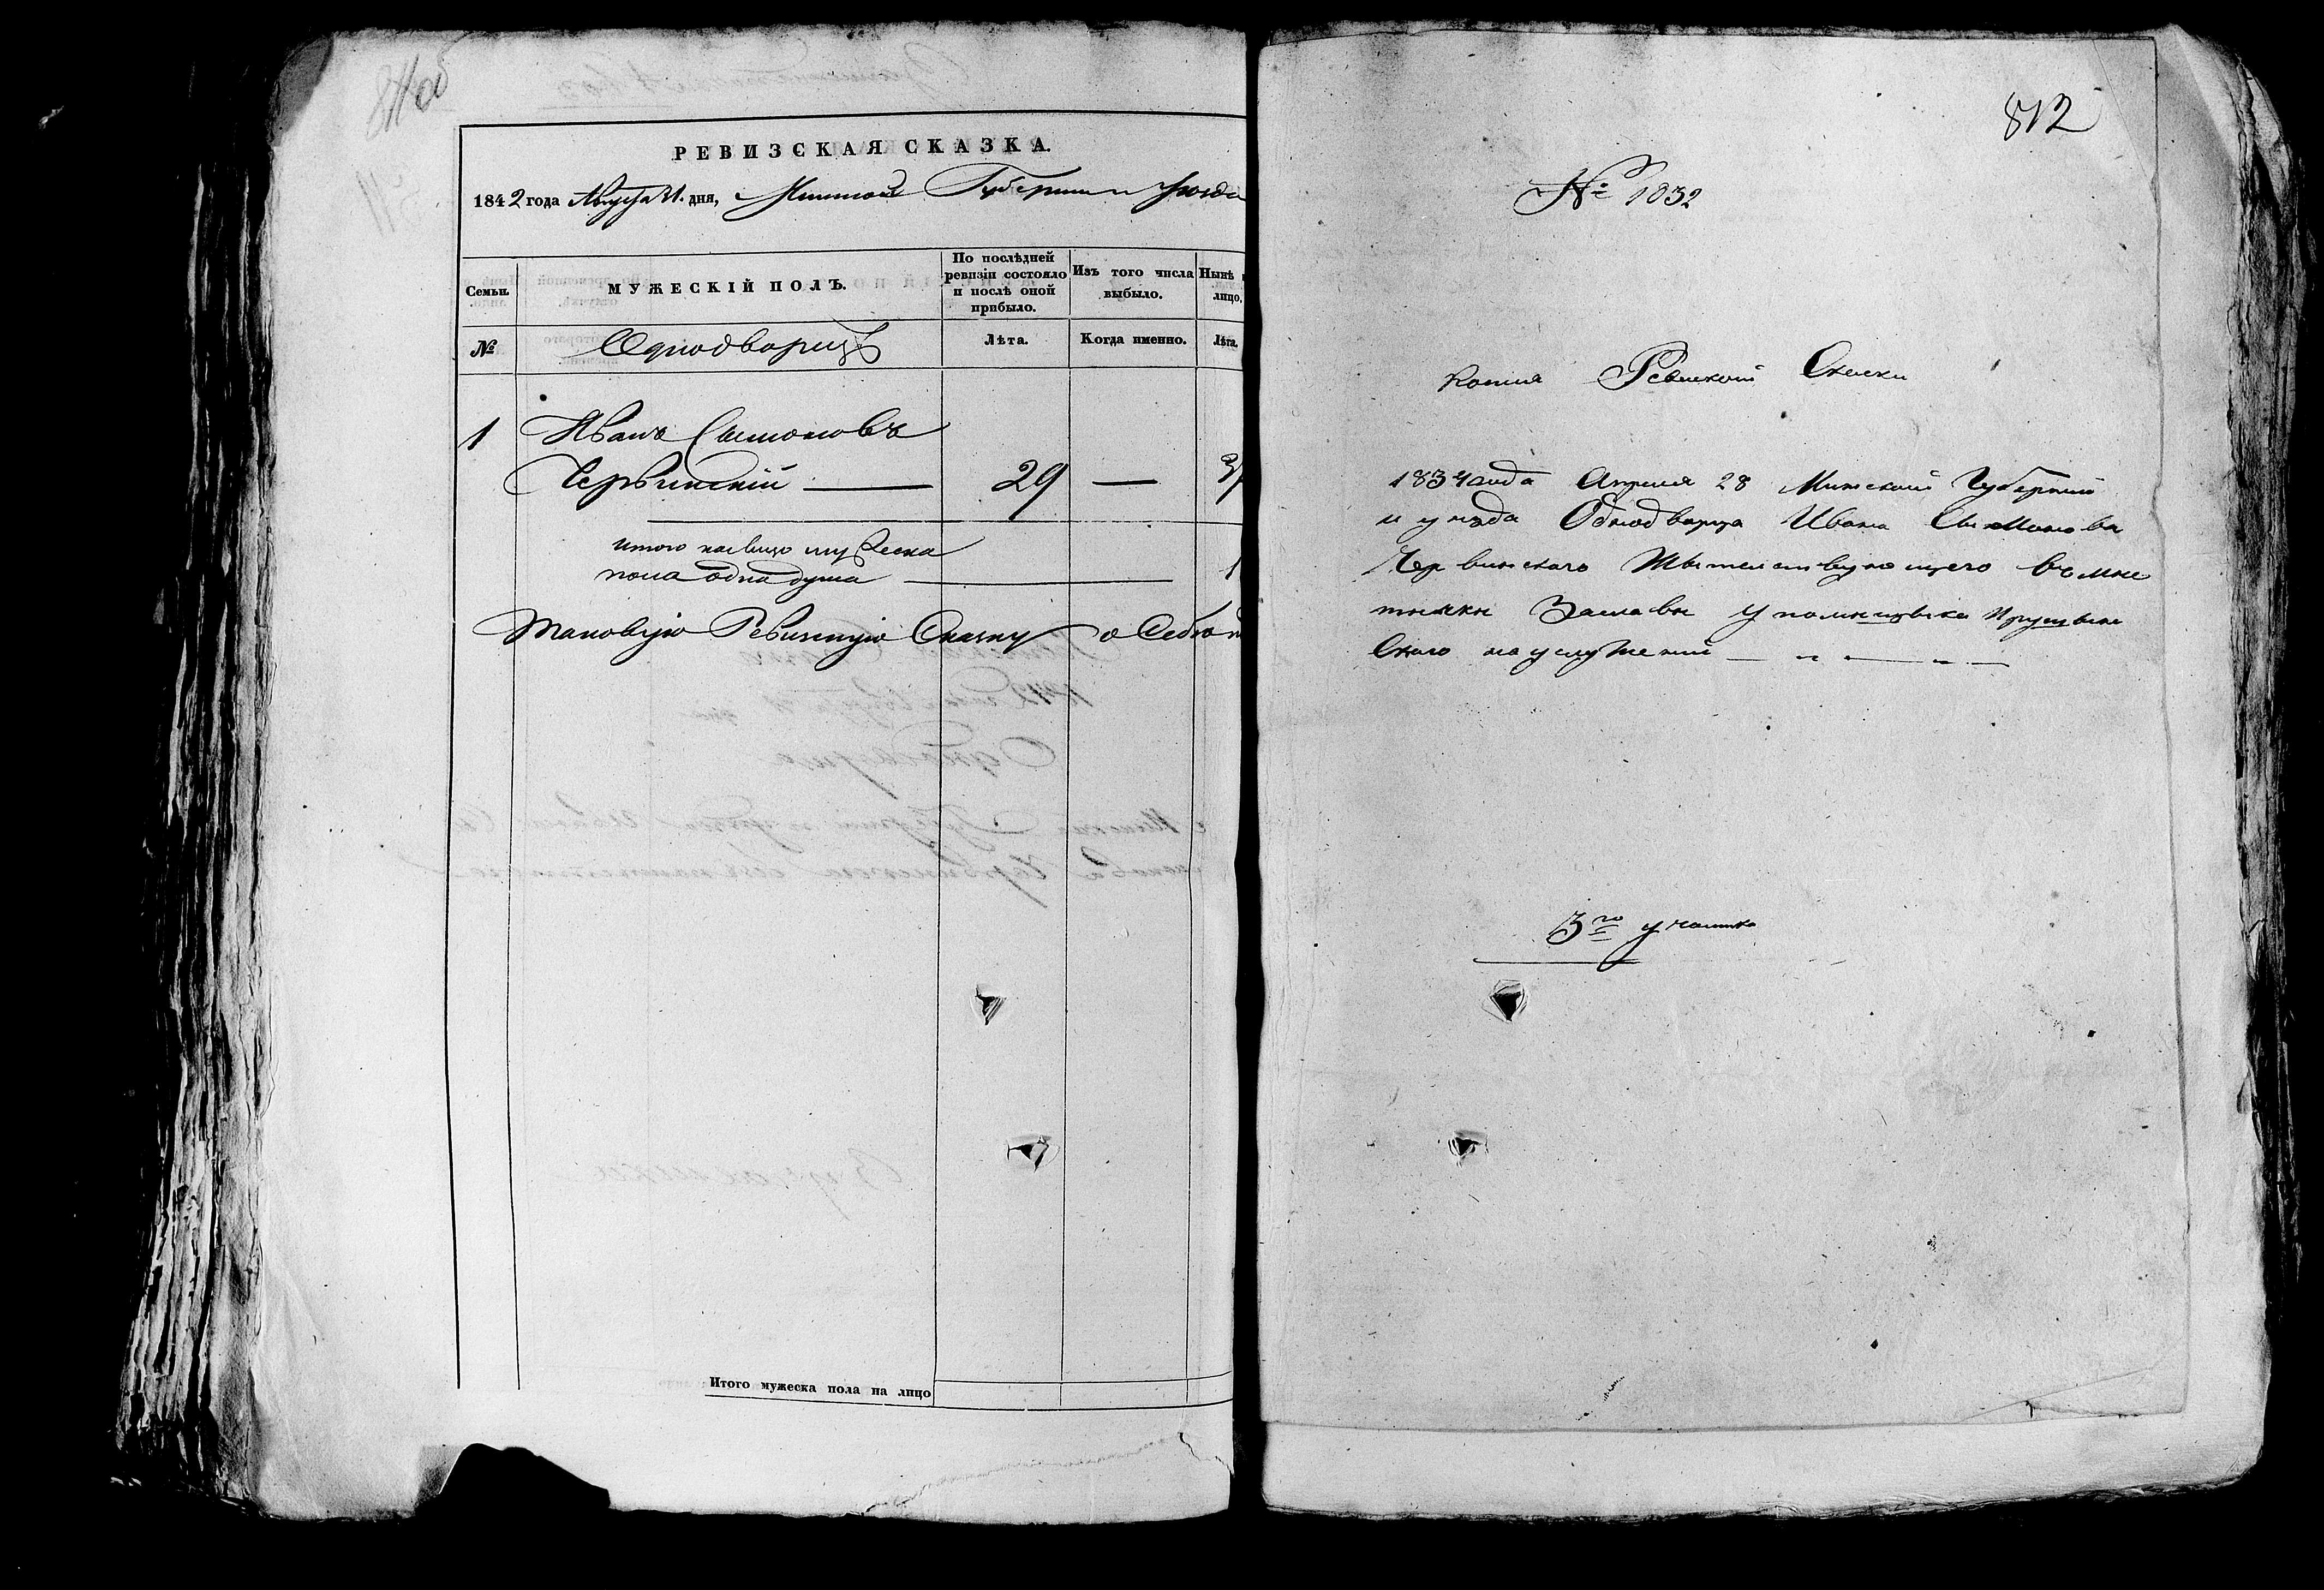 РЕВИЗСКАЯ СКАЗКА.
1842 года Августа 31. дня, Минской Губернии и уезда
Семьи.
МУЖЕСКІЙ ПОЛЪ.
По послѣдней ревизіи состояло и послѣ оной прибыло.
Изъ того числа выбыло.
Нынѣ
лицо.
№
Однодворецъ
Лѣта.
Когда именно.
Лѣта.
1 Иванъ Сымоновъ
Червинскій — 29 —
итого на лицо мужеска
пола одна душа — 1
Таковую Ревизскую Сказку о Себѣ
Итого мужеска пола на лицо
812
№ 1832
Копия Ревизкой Скаски
1834 года Апреля 28 Минской Губернии
и уезда Однодворца Ивана Сымонова
Червинского Жытельствующего въ мѣс
течки Заславы у помещыка Прушын
Ского на услужении
3го участка